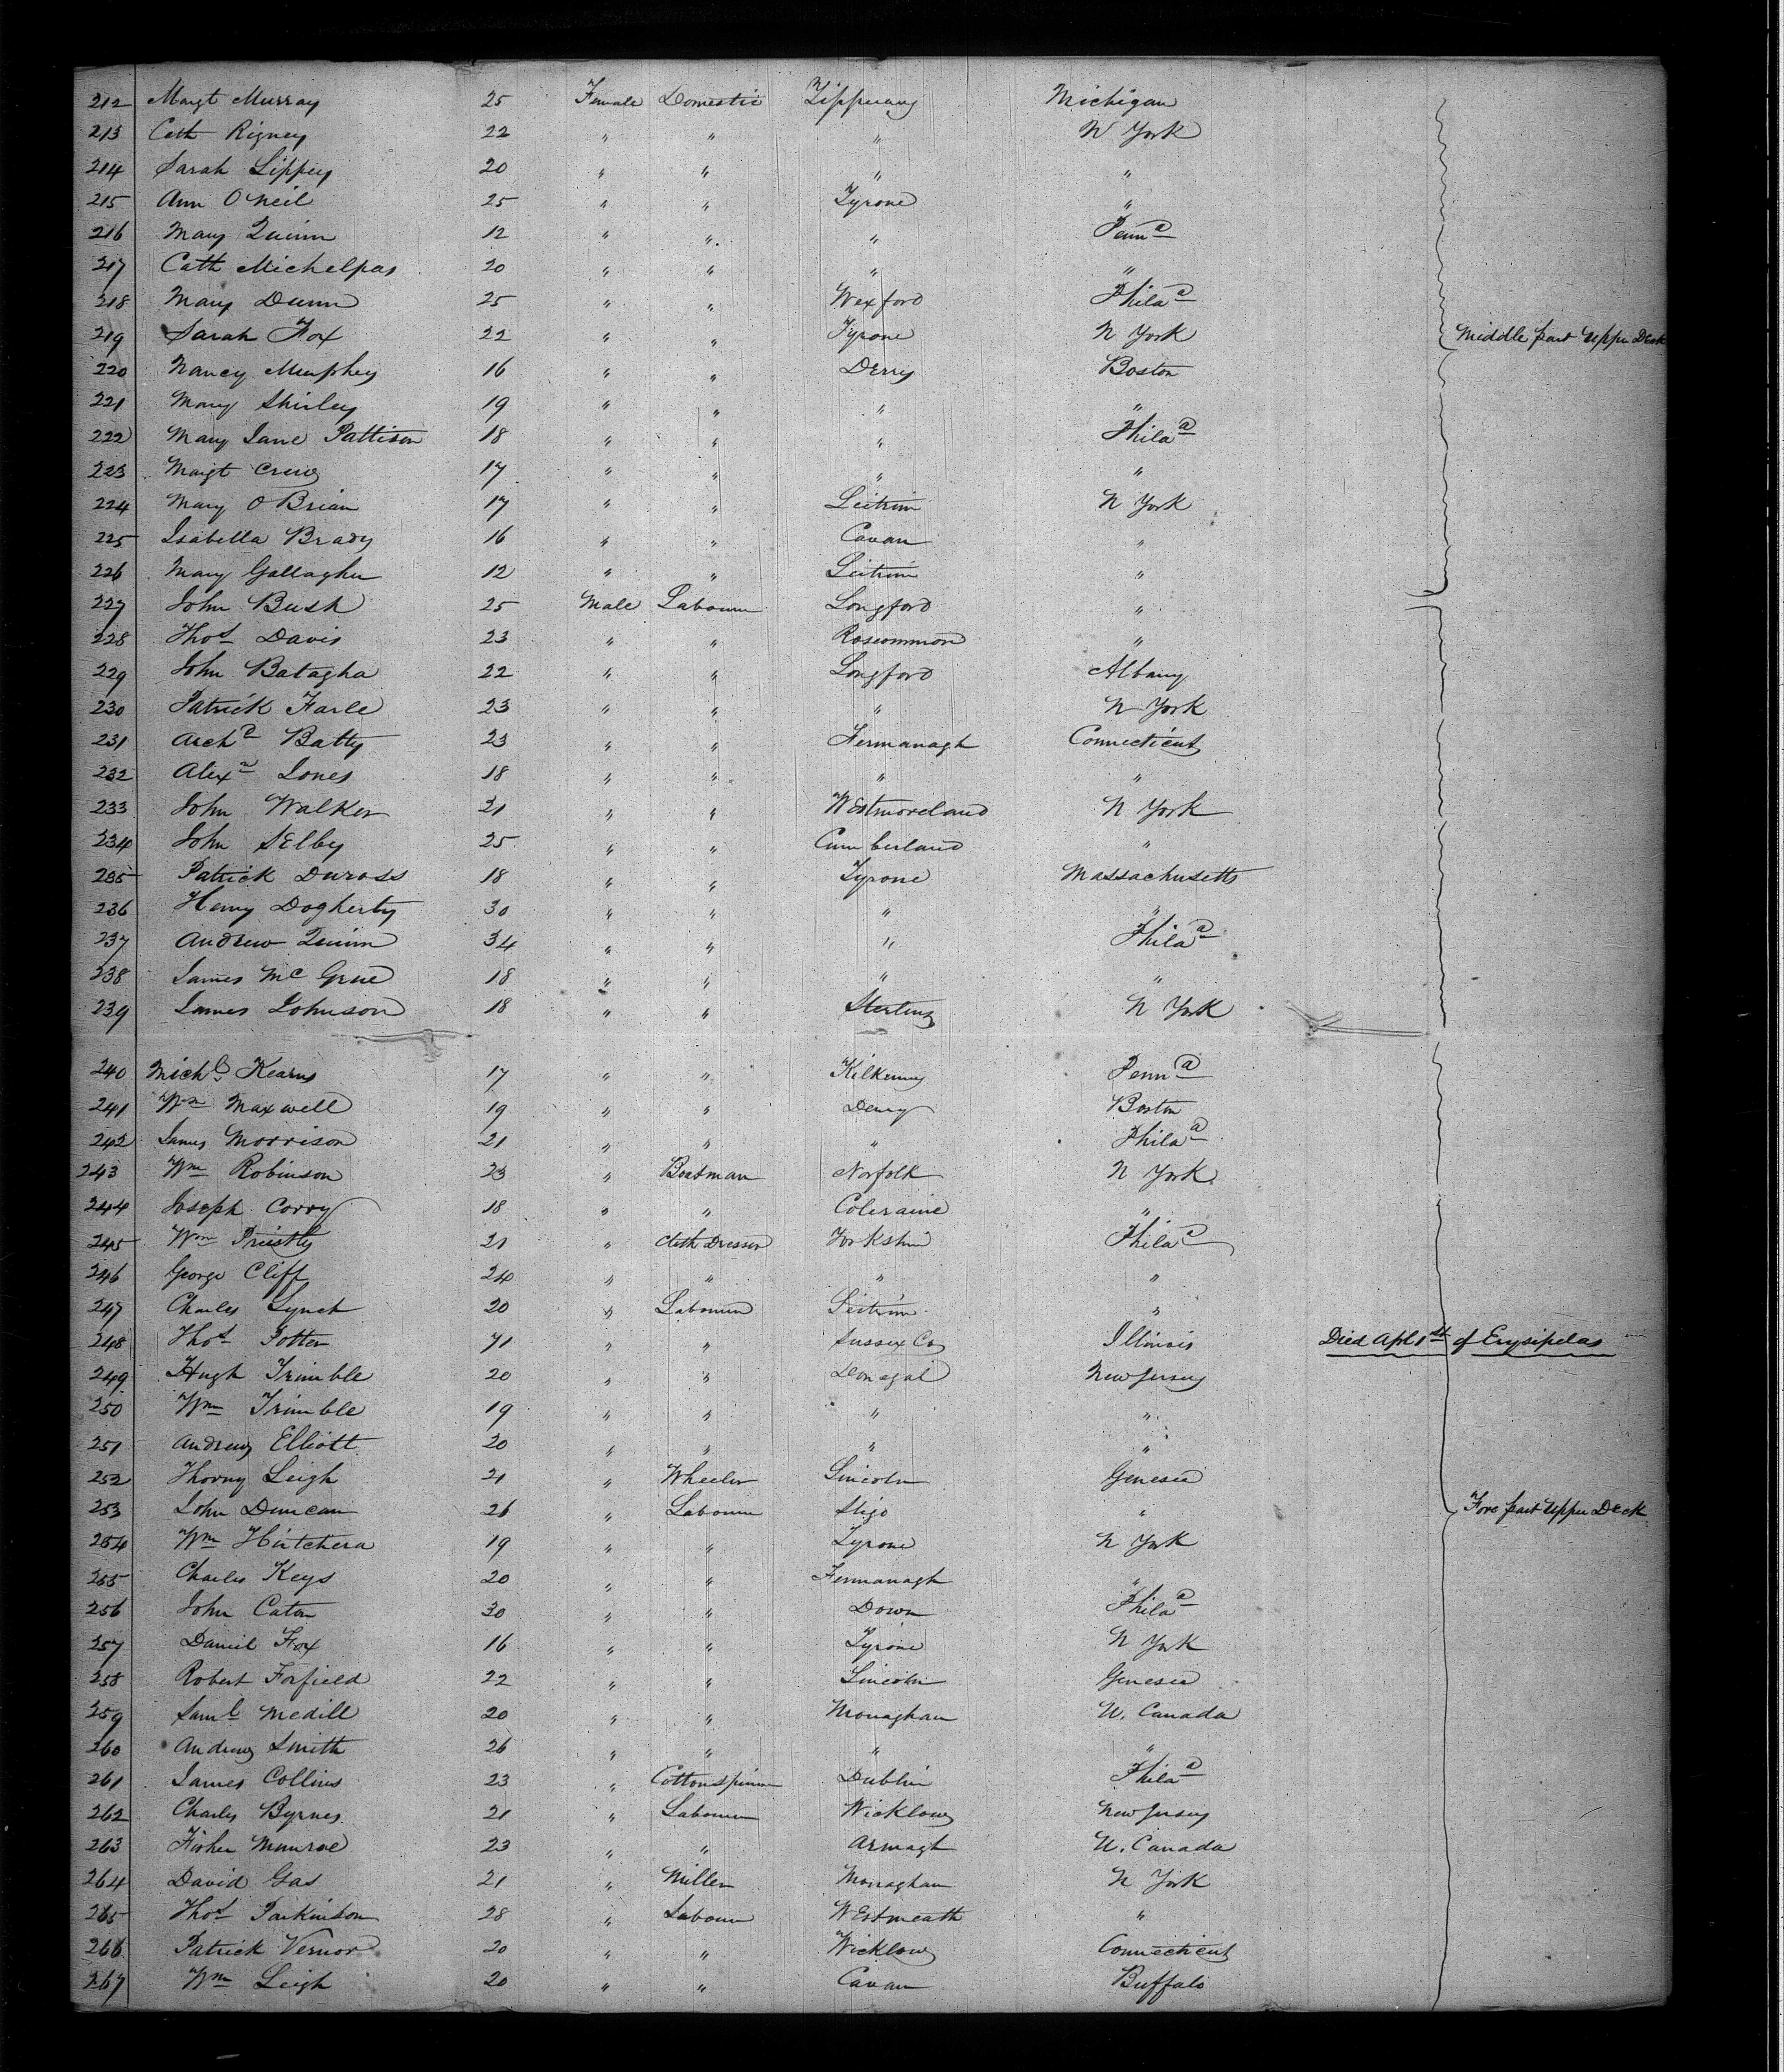 212 Margt Murray 25 Female Domestic Tipperary Michigan
213 Cath Rigney 22 " " " N York
214 Sarah Lippey 20 " " " "
215 Ann O Neil 25 " " Tyrone "
216 Mary Quinn 12 " " " Penna
217 Cath Michelpas 20 " " " "
218 Mary Dunn 25 " " Wexford Phila
219 Sarah Fox 22 " " Tyrone N York Middle part Upper Deck
220 Nancy Murphey 16 " " Derry Boston
221 Mary Shirley 19 " " " "
222 Mary Jane Pattison 18 " " " Phila
223 Margt 17 " " " "
224 Mary O Brian 17 " " Leitrim N York
225 Isabella Brady 16 " " Cavan "
226 Mary Gallagher 12 " " Leitrim "
227 John Bush 25 Male Labourer Longford "
228 Thos Davis 23 " " Roscommon "
229 John Batagha 22 " " Longford Albany
230 Patrick Farle 23 " " " N York
231 Archd Batty 23 " " Fermanagh Connecticut
232 Alexr Jones 18 " " " "
233 John Walker 21 " " Westmoreland N York
234 John Selby 25 " " Cumberland "
235 Patrick Duross 18 " " Tyrone Massachusetts
236 Henry Dogherty 30 " " " "
237 Andrew Quinn 34 " " " Phila
238 James Mc Grue 18 " " " "
239 James Johnson 18 " " Sterling N York
240 Michl Kearns 17 " " Kilkenny Penna
241 Wm Maxwell 19 " " Derry Boston
242 James Morrison 21 " " " Phila
243 Wm Robinson 23 " Boatman Norfolk N York
244 Joseph Corry 18 " " Coleraine "
245 Wm Priestly 21 " Cloth Dresser Yorkshire Phila
246 George Cliff 24 " " " "
247 Charles Lynch 20 " Labourer Leitrim "
248 Thos Potter 71 " " Sussex Co Illinois Died Apl 1st of Erysipelas
249 Hugh Trimble 20 " " Donegal New Jersey
250 Wm Trimble 19 " " " "
251 Andrew Elliott 20 " " " "
252 Leigh 21 " Wheeler Lincoln Genesee
253 John Duncan 26 " Labourer Sligo " Fore part Upper Deck
254 Wm Hutchera 19 " " Tyrone N York
255 Charles Keys 20 " " Fermanagh "
256 John Caton 30 " " Down Phila
257 Daniel Fox 16 " " Tyrone N York
258 Robert Forfield 22 " " Lincoln Genesee
259 Saml Medill 20 " " Monaghan U. Canada
260 Andrew Smith 26 " " " "
261 James Collins 23 " Cottonspinner Dublin Phila
262 Charles Byrnes 21 " Labourer Wicklow New Jersey
263 Fisher Munroe 23 " " Armagh U. Canada
264 David Gas 21 " Miller Monaghan N York
265 Thos Parkinson 28 " Labourer Westmeath "
266 Patrick Vernor 20 " " Wicklow Connecticut
267 Wm Leigh 20 " " Cavan Buffalo